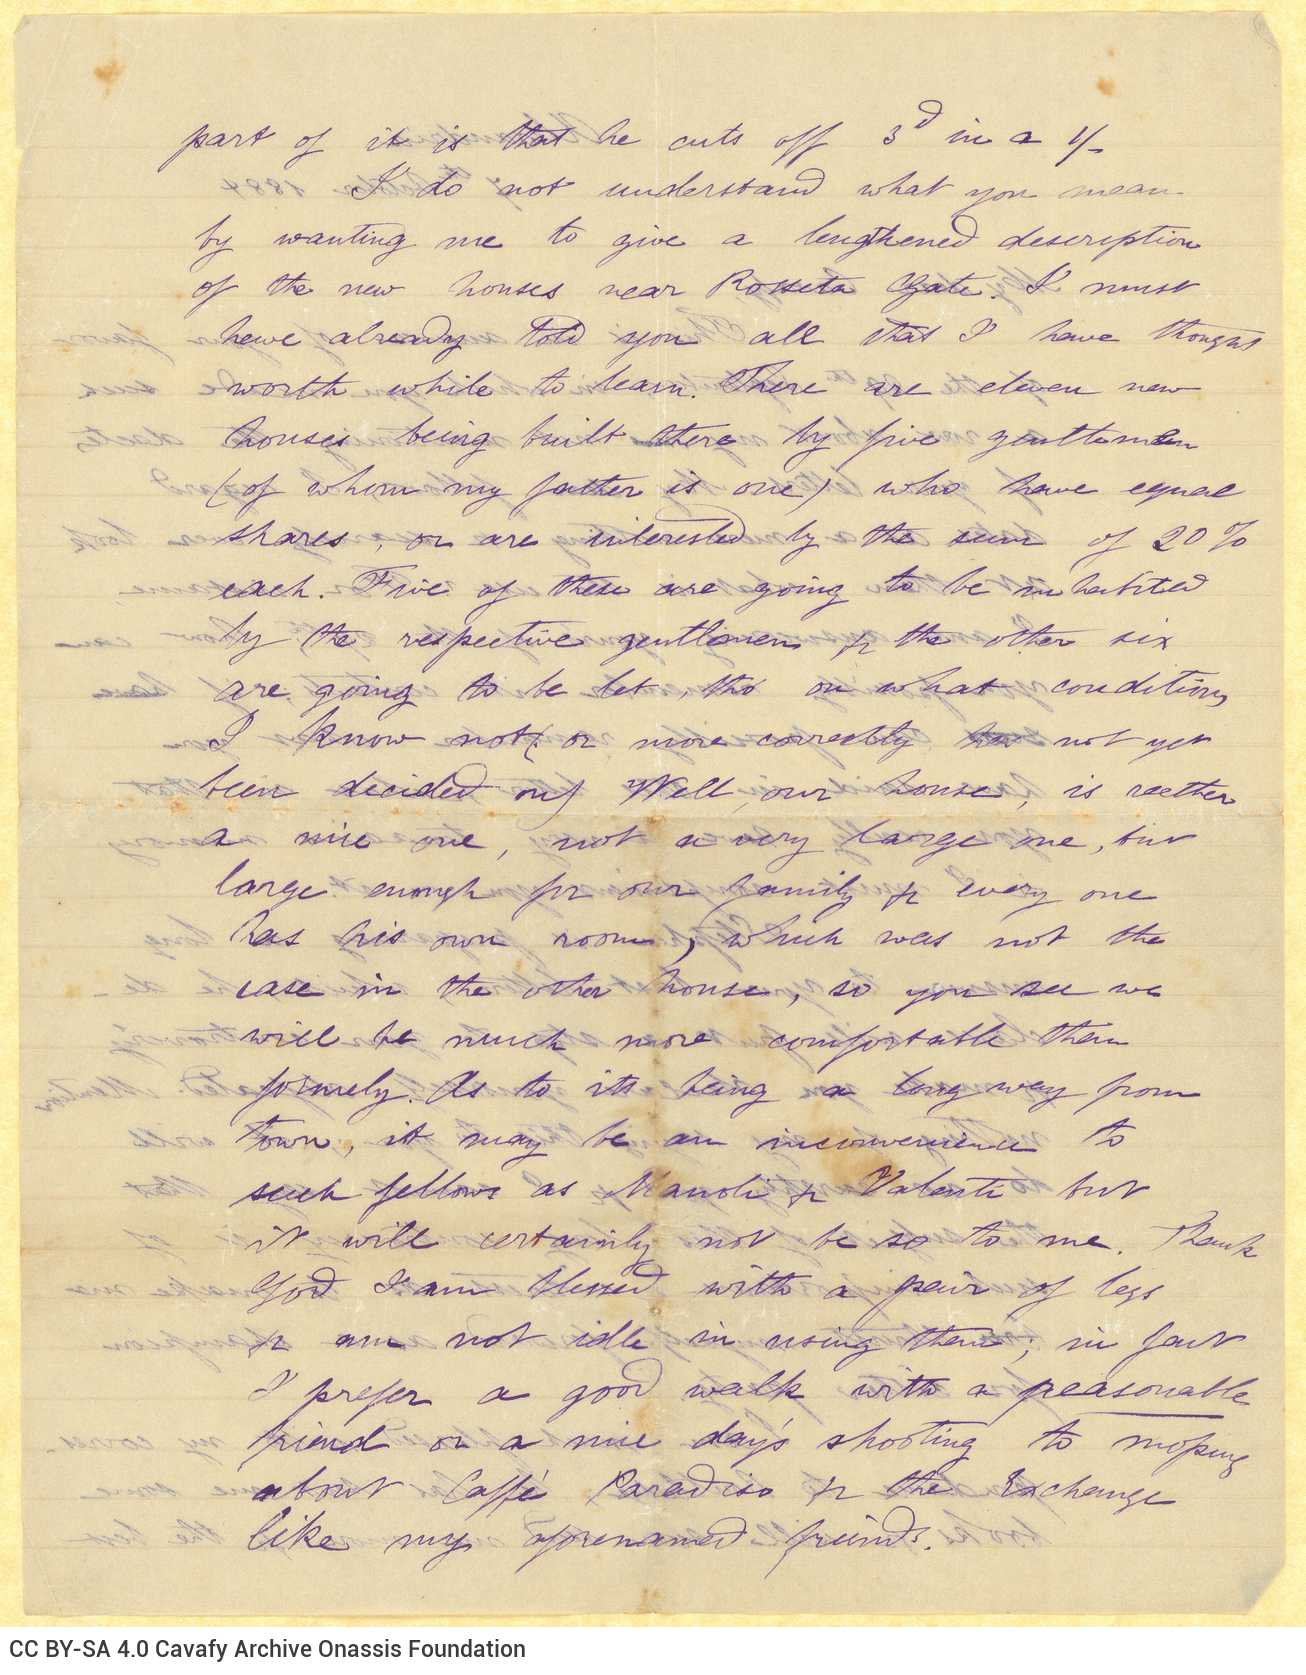 part of it is that he cuts off 3d in a 1/-
I do not understand what you mean
by wanting me to give a lengthened description
of the new houses near Rosseta Gate. I must
have already told you all that I have thought
worth while to learn. There are eleven new
houses being built there by five gentlemen
(of whom my father is one) who have equal
shares, or are interested by the sum of 20%
each. Five of these are going to be inhabited
by the respective gentlemen & the other six
are going to be let, tho' on what conditions
I know not (or more correctly has not yet
been decided on) Well, our house, is rather
a nice one, not a very large one, but
large enough for our family & every one
has his own room, which was not the
case in the other house, so you see we
will be much more comfortable than
formely. As to its being a long way from
town, it may be an inconvenience to
such fellows as Manoli & Valenti but
it will certainly not be so to me. Thank
God I am blessed with a pair of legs
& am not idle in using them; in fact
I prefer a good walk with a reasonable
friend or a nice day's shooting to moping
about Caffé Paradiso & the Exchange
like my aforenamed friends.
CC BY-SA 4.0 Cavafy Archive Onassis Foundation